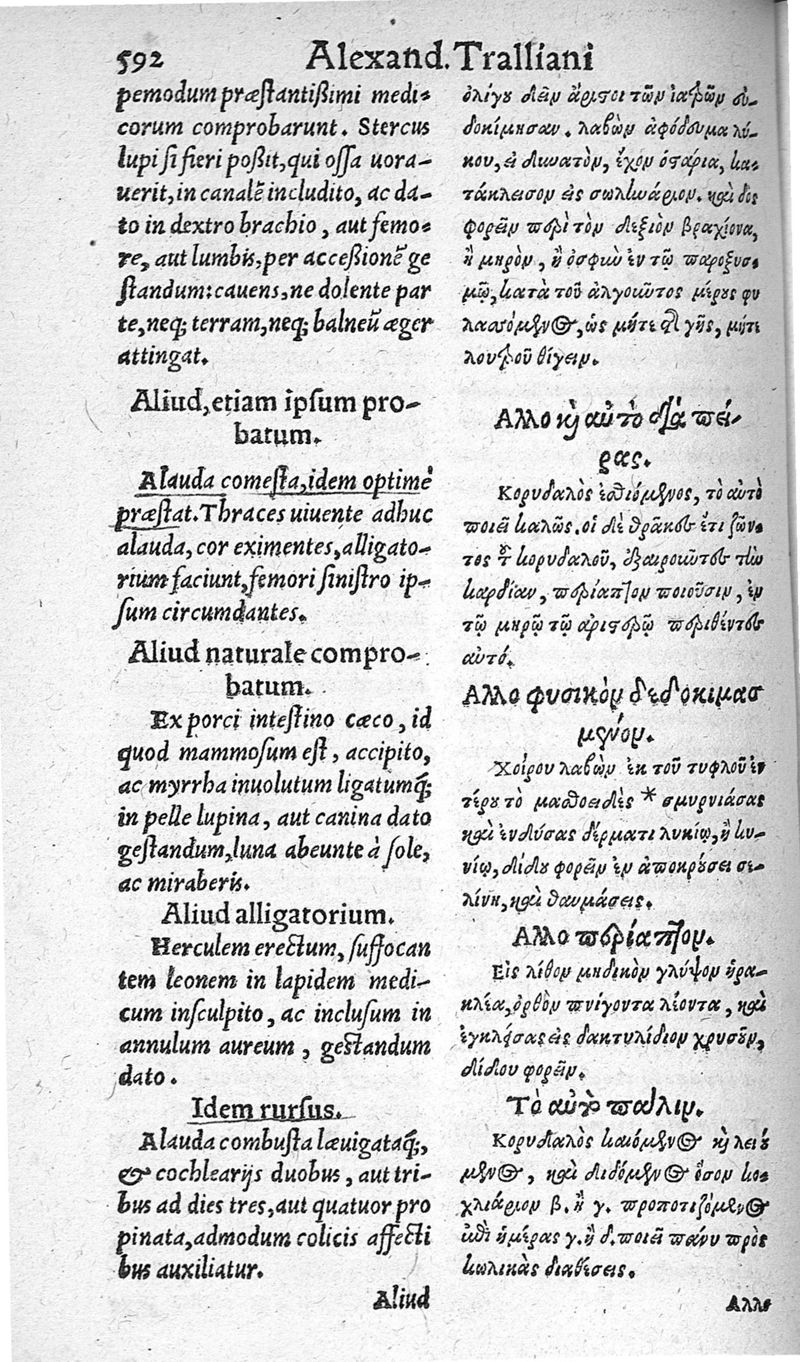 592 Alexand. Tralliani
pemodum præstantißimi medi-
corum comprobarunt. Stercus
lupi si fieri poßit, qui ossa uora-
uerit, in canalē includito, ac da-
to in dextro brachio, aut femo-
re, aut lumbis, per acceßionē ge
standum: cauens, ne dolente par
te, neq; terram, neq; balneū æger
attingat.
Aliud, etiam ipsum pro-
batum.
Alauda comesta, idem optimè
præstat. Thraces uiuente adhuc
alauda, cor eximentes, alligato-
rium faciunt, femori sinistro ip-
sum circumdantes.
Aliud naturale compro-
batum.
Ex porci intestino cæco, id
quod mammosum est, accipito,
ac myrrha inuolutum ligatumq́;
in pelle lupina, aut canina dato
gestandum, luna abeunte à sole,
ac miraberis.
Aliud alligatorium.
Herculem erectum, suffocan
tem leonem in lapidem medi-
cum insculpito, ac inclusum in
annulum aureum, gestandum
dato.
Idem rursus.
Alauda combusta læuigataq́;,
& cochlearijs duobus, aut tri-
bus ad dies tres, aut quatuor pro
pinata, admodum colicis affecti
bus auxiliatur.
Aliud
ὀλίγου δεῖν ἄριστοι τῶν ἰατρῶν εὐ-
δοκίμησαν. λαβὼν ἀφόδευμα λύ-
κου, εἰ δυνατὸν, ἔχον ὀστάρια, κα-
τάκλεισον εἰς σωληνάριον. καὶ δὸς
φορεῖν περὶ τὸν δεξιὸν βραχίονα,
ἢ μηρὸν, ἢ ὀσφιὼ ἐν τῷ παροξυσ-
μῷ, κατὰ τοῦ ἀλγοιῶτος μέρους φυ
λασσόμενος, ὡς μήτε γῆς, μήτε
λουτροῦ θίγειν.
Αλλο καὶ αὐτὸ διὰ πεί-
ρας.
Κορυδαλὸς ἐσθιόμενος, τὸ αὐτὸ
ποιεῖ καλῶς. οἱ δὲ θρᾶκες ἔτι ζῶν-
τος τοῦ κορυδαλοῦ, ἐξαιροιῶτες τὴν
καρδίαν, περίαπτον ποιοῦσιν, ἐν
τῷ μηρῷ τῷ ἀριστερῷ περιθέντες
αὐτό.
Αλλο φυσικὸν δεδοκιμασ
μένον.
Χοίρου λαβὼν ἐκ τοῦ τυφλοῦ ἐν
τέρου τὸ μαστοειδὲς * σμυρνιάσας
καὶ ἐνδύσας δέρματι λυκίῳ, ἢ κυ-
νίῳ, δίδου φορεῖν ἐν ἀποκρούσει σε-
λήνη, καὶ θαυμάσεις.
Αλλο περίαπτον.
Εἰς λίθον μηδικὸν γλύψον ἡρα-
κλέα, ὀρθὸν πνίγοντα λέοντα, καὶ
ἐγκλείσας εἰς δακτυλίδιον χρυσοῦν,
δίδου φορεῖν.
Τὸ αὐτὸ πάλιν.
Κορυδαλὸς καιόμενος καὶ λειού
μενος, καὶ διδόμενος ὅσον κο-
χλιάριον β. ἢ γ. προποτιζόμενος
ἐπὶ ἡμέρας γ. ἢ δ. ποιεῖ πάνυ πρὸς
κωλικὰς διαθέσεις.
Αλλο